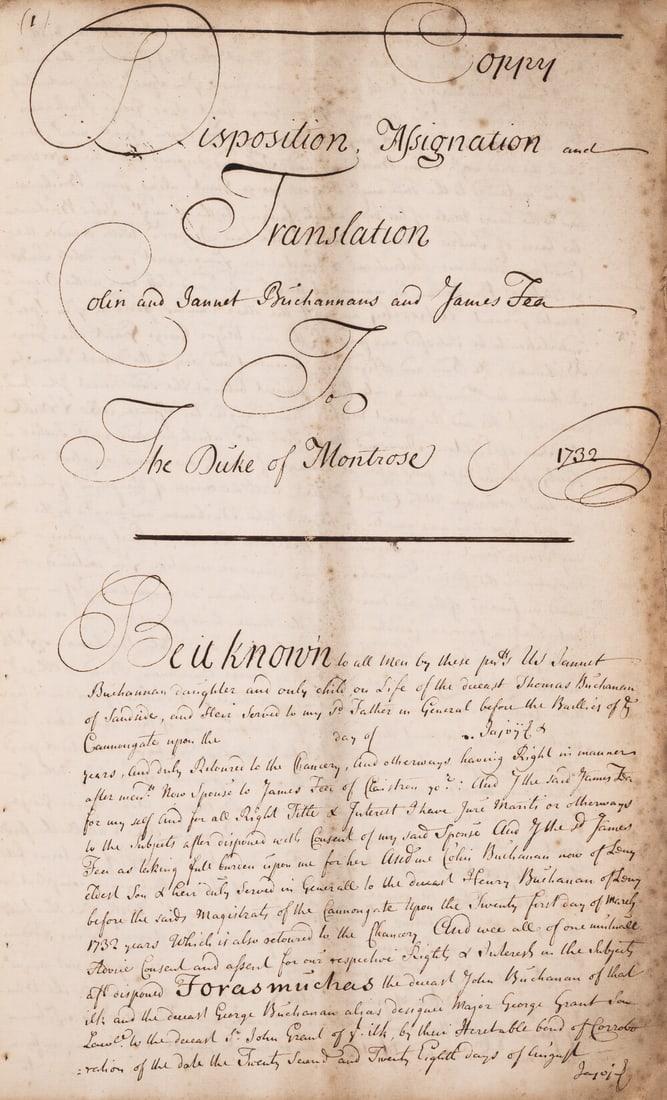 (1)
Coppy
Disposition, Assignation and
Translation
Colin and Jannet Buchannans and James Fea
To
The Duke of Montrose 1732
Be it known to all Men by these pnts Us Jannet
Buchannan daughter and only child on Life of the deceast Thomas Buchanan
of Sandside, and Heir Served to my sd Father in General before the Baillies of ye
Cannongate upon the day of
years, And duly Retoured to the Chancery, And otherways having Right in manner
after mentd Now Spouse to James Fea of Claistron yor: And I the said James Fea
for my self And for all Right Title & Interest I have Jure Mariti or otherways
to the Subjects after disponed with Consent of my said Spouse And I the sd James
Fea as taking full burden upon me for her And me Colin Buchanan now of Leny
Eldest Son & heir duly Served in Generall to the deceast Henry Buchanan of Leny
before the saids Magistrats of the Cannongate Upon the Twenty first day of March
1732 years Which is also retoured to the Chancery And wee all of one mutuall
Advice Consent and assent for our respective Rights & Interests in the Subjects
aft disponed Forasmuchas the deceast John Buchanan of that
ilk and the deceast George Buchanan alias designed Major George Grant Son
Lawll to the deceast Sr John Grant of yt ilk, by their Heretable bond of Corrobo
:ration of the date the Twenty Seven and Twenty Eighth days of August